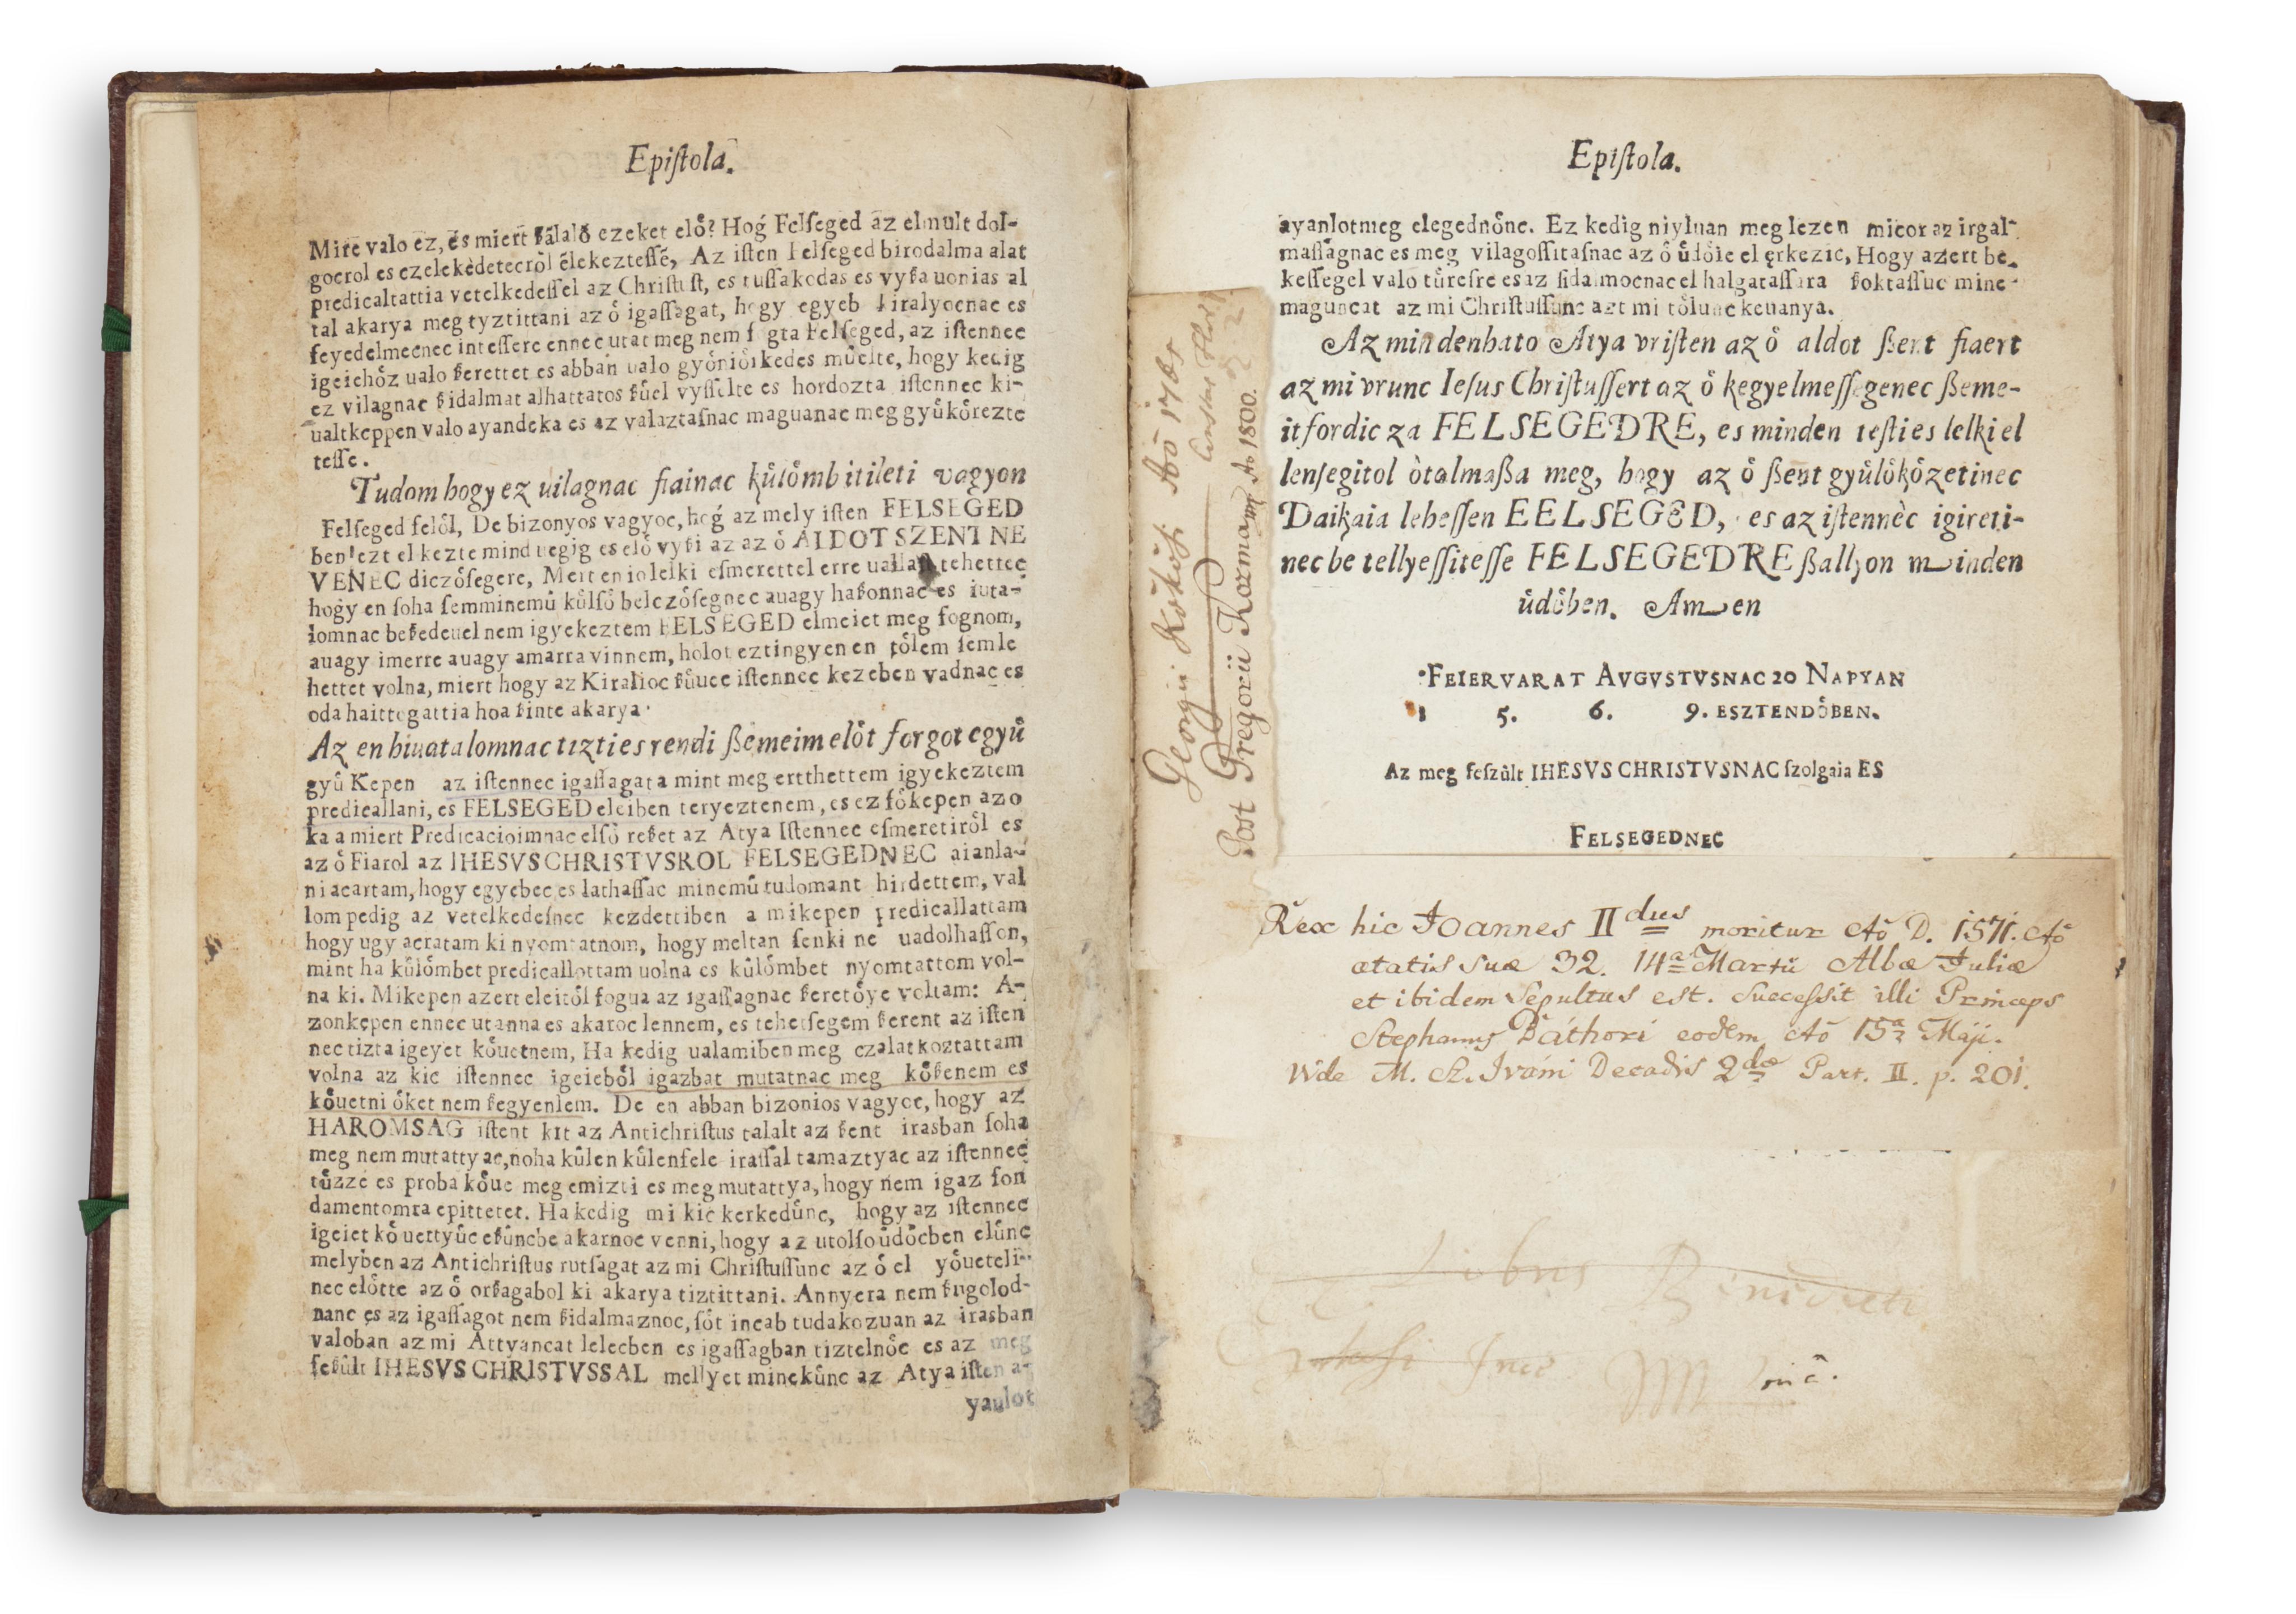 Epiſtola.
Mire valo ez, és miert ßálaló ezeket elő? Hoǵ Felſeged az elmult dol-
gocrol es ezelekèdetecről élekezteſſé, Az iſten Felſeged birodalma alat
predicaltattia vetelkedeſſel az Chriſtuſt, es tuſſakodas es vyßa uonias al
tal akarya meg tyztittani az ő igaſſagat, hogy egyeb kiralyocnac es
feyedelmecnec inteſſere ennec utat meg nem fogta Felſeged, az iſtennec
igeichőz ualo ßerettet es abban ualo győniőrkedes műelte, hogy kedig
ez vilagnac ßidalmat alhattatos ßűel vyſſelte es hordozta iſtennec ki-
ualtkeppen valo ayandeka es az valaztaſnac maguanac meg gyűkőrezte
teſſe.
Tudom hogy ez uilagnac fiainac kűlőmb itileti vagyon
Felſeged felől, De bizonyos vagyoc, hoǵ az mely iſten FELSEGED
ben ezt elkezte mind uegig es elő vyßi az az ő ALDOT SZENT NE
VENEC diczőſegere, Mert en io lelki eſmerettel erre uallaſt tehettec
hogy en ſoha ſemminemű kűlſő belczőſegnec auagy haßonnac es iuta-
lomnac beßedeuel nem igyekeztem FELSEGED elmeiet meg fognom,
auagy imerre auagy amarra vinnem, holot eztingyen en tőlem ſemle
hettet volna, miert hogy az Kiralioc ßűuec iſtennec kezeben vadnac es
oda haittogattia hoa ßinte akarya.
Az en hiuatalomnac tizties rendi ßemeim elöt forgot együ
gyű Kepen az iſtennec igaſſagat a mint meg ertthettem igyekeztem
predicallani, es FELSEGED eleiben teryeztenem, es ez főkepen az o
ka a miert Predicacioimnac elſő reßet az Atya Iſtennec eſmeretiről es
az ő Fiarol az IHESVS CHRISTVSROL FELSEGEDNEC aianla-
ni acartam, hogy egyebec es lathaſſac minemű tudomant hirdettem, val
lom pedig az vetelkedeſnec kezdettiben a mikepen predicallattam
hogy ugy acratam ki nyomtatnom, hogy meltan ſenki ne uadolhaſſon,
mint ha kűlőmbet predicallottam uolna es kűlőmbet nyomtattom vol-
na ki. Mikepen azert eleitől fogua az igaſſagnac ßeretőye voltam: A-
zonkepen ennec utanna es akaroc lennem, es tehetſegem ßerent az iſten
nec tizta igeyet kőuetnem, Ha kedig ualamiben meg czalatkoztattam
volna az kic iſtennec igeieből igazbat mutatnac meg kőßenem es
kőuetni őket nem ßegyenlem. De en abban bizonios vagyoc, hogy az
HAROMSAG iſtent kit az Antichriſtus talalt az ßent irasban ſoha
meg nem mutattyac, noha kűlen kűlenfele iraſſal tamaztyac az iſtennec
tűzze es proba kőue meg emizti es meg mutattya, hogy nem igaz fon
damentomra epittetet. Ha kedig mi kic kerkedűnc, hogy az iſtennec
igeiet kőuettyűc eßűncbe akarnoc venni, hogy az utolſo űdőcben elűnc
melyben az Antichriſtus rutſagat az mi Chriſtuſſunc az ő el yőueteli-
nec előtte az ő orßagabol ki akarya tiztittani. Annyera nem ßugolod-
nanc es az igaſſagot nem ßidalmaznoc, ſőt incab tudakozuan az irasban
valoban az mi Attyancat lelecben es igaſſagban tiztelnőc es az meg
feßűlt IHESVS CHRISTVSSAL mellyet minekűnc az Atya iſten a-
yaulot
Epiſtola.
ayanlotmeg elegednőnc. Ez kedig niyluan meg lezen micor az irgal-
maſſagnac es meg vilagoſſitaſnac az ő űdőie el ęrkezic, Hogy azert be
keſſegel valo tűreſre es az ſidalmocnac el halgataſſara ßoktaſſuc minc-
maguncat az mi Chriſtuſſunc azt mi tőlunc keuanya.
Az mindenhato Atya vriſten az ö aldot ßent fiaert
az mi vrunc Ieſus Chriſtuſſert az ö kegyelmeſſegenec ßeme-
it fordicza FELSEGEDRE, es minden teſti es lelki el
lenſegitol òtalmaßa meg, hogy az ö ßent gyülöközetinec
Daikaia lehеſſen EELSEGED, es az iſtennèc igireti-
nec be tellyeſſiteſſe FELSEGEDRE ßallyon minden
üdöben. Amen
FEIERVARAT AVGVSTVSNAC 20 NAPYAN
1 5. 6. 9. ESZTENDŐBEN.
Az meg feſzűlt IHESVS CHRISTVSNAC ſzolgaia ES
FELSEGEDNEC
Georgii Kőkősi Aō
Post Gregorii Kozma Aō 1800.
Rex hic Joannes II dus moritur Aō D. 1571. Aō
ætatis suæ 32. 14a Martii Albæ Juliæ
et ibidem Sepultus est. Successit illi Princeps
Stephanus Báthori eodem Aō 15a Maji.
Vide M. Sz. Iváni Decadis 2dæ Part. II. p. 201.